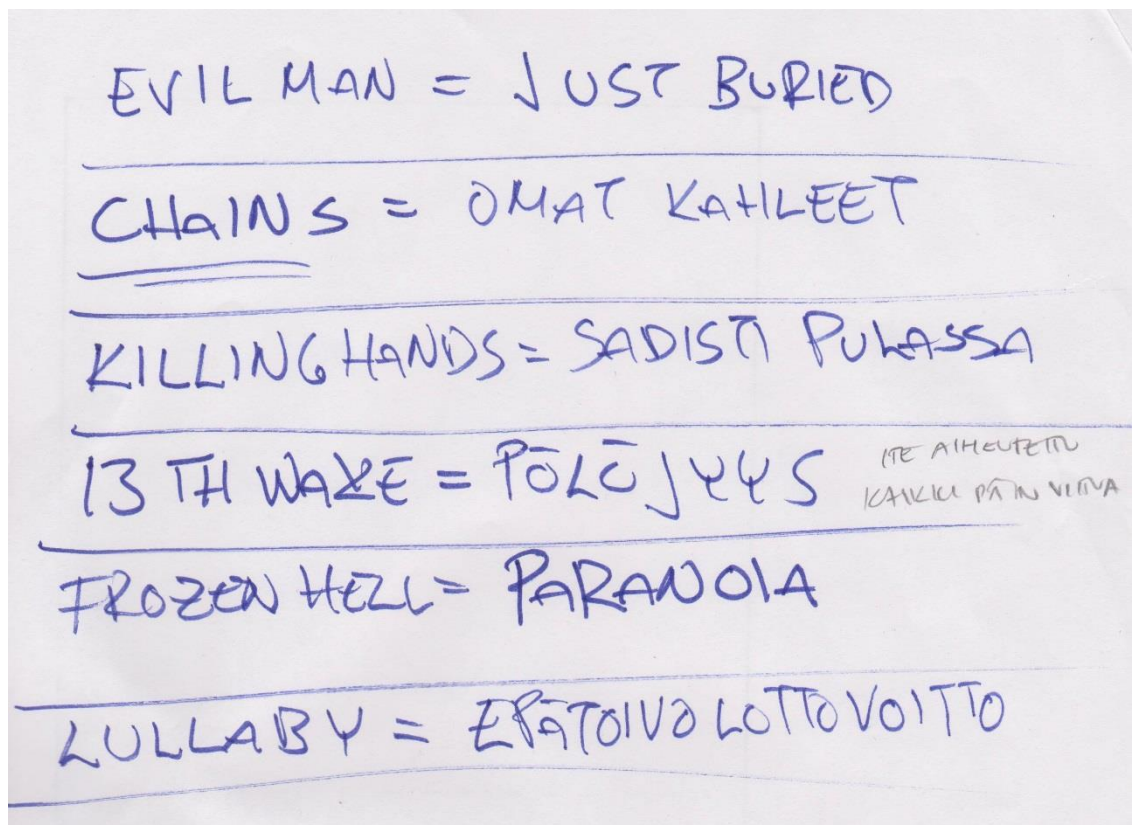 EVIL MAN = JUST BURIED
CHAINS = OMAT KAHLEET
KILLING HANDS = SADISTI PULASSA
13 TH WAKE = PÖLÖJYYS
ITE AIHEUTETTU
KAIKKI PÄIN VITTUA
FROZEN HELL = PARANOIA
LULLABY = EPÄTOIVO LOTTOVOITTO